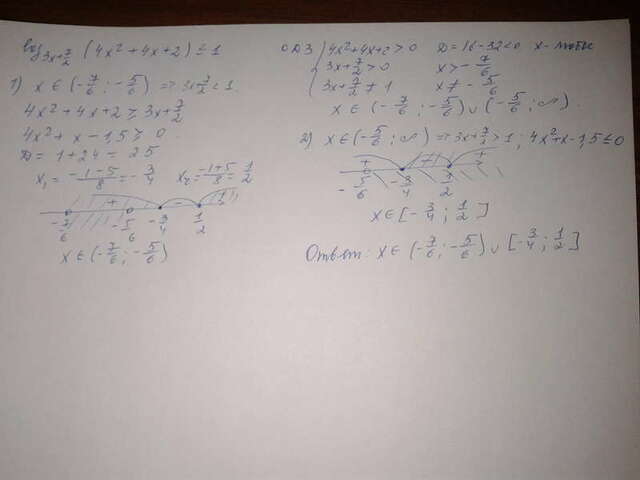 log₃ₓ₊₇/₂ (4x² + 4x + 2) ≤ 1
1) x ∈ (-7/6 ; -5/6) ⇒ 3x+7/2 < 1.
4x² + 4x + 2 ≥ 3x + 7/2
4x² + x - 1,5 ≥ 0
D = 1 + 24 = 25
x₁ = (-1-5)/8 = -3/4 x₂ = (-1+5)/8 = 1/2
+ - +
-7/6 -5/6 -3/4 1/2
x ∈ (-7/6 ; -5/6)
ОДЗ { 4x² + 4x + 2 > 0 D = 16 - 32 < 0 x - любое
3x + 7/2 > 0 x > -7/6
3x + 7/2 ≠ 1 x ≠ -5/6
x ∈ (-7/6 ; -5/6) ∪ (-5/6 ; ∞).
2) x ∈ (-5/6 ; ∞) ⇒ 3x + 7/2 > 1 ; 4x² + x - 1,5 ≤ 0
+ - +
-5/6 -3/4 1/2
x ∈ [-3/4 ; 1/2]
Ответ: x ∈ (-7/6 ; -5/6) ∪ [-3/4 ; 1/2]